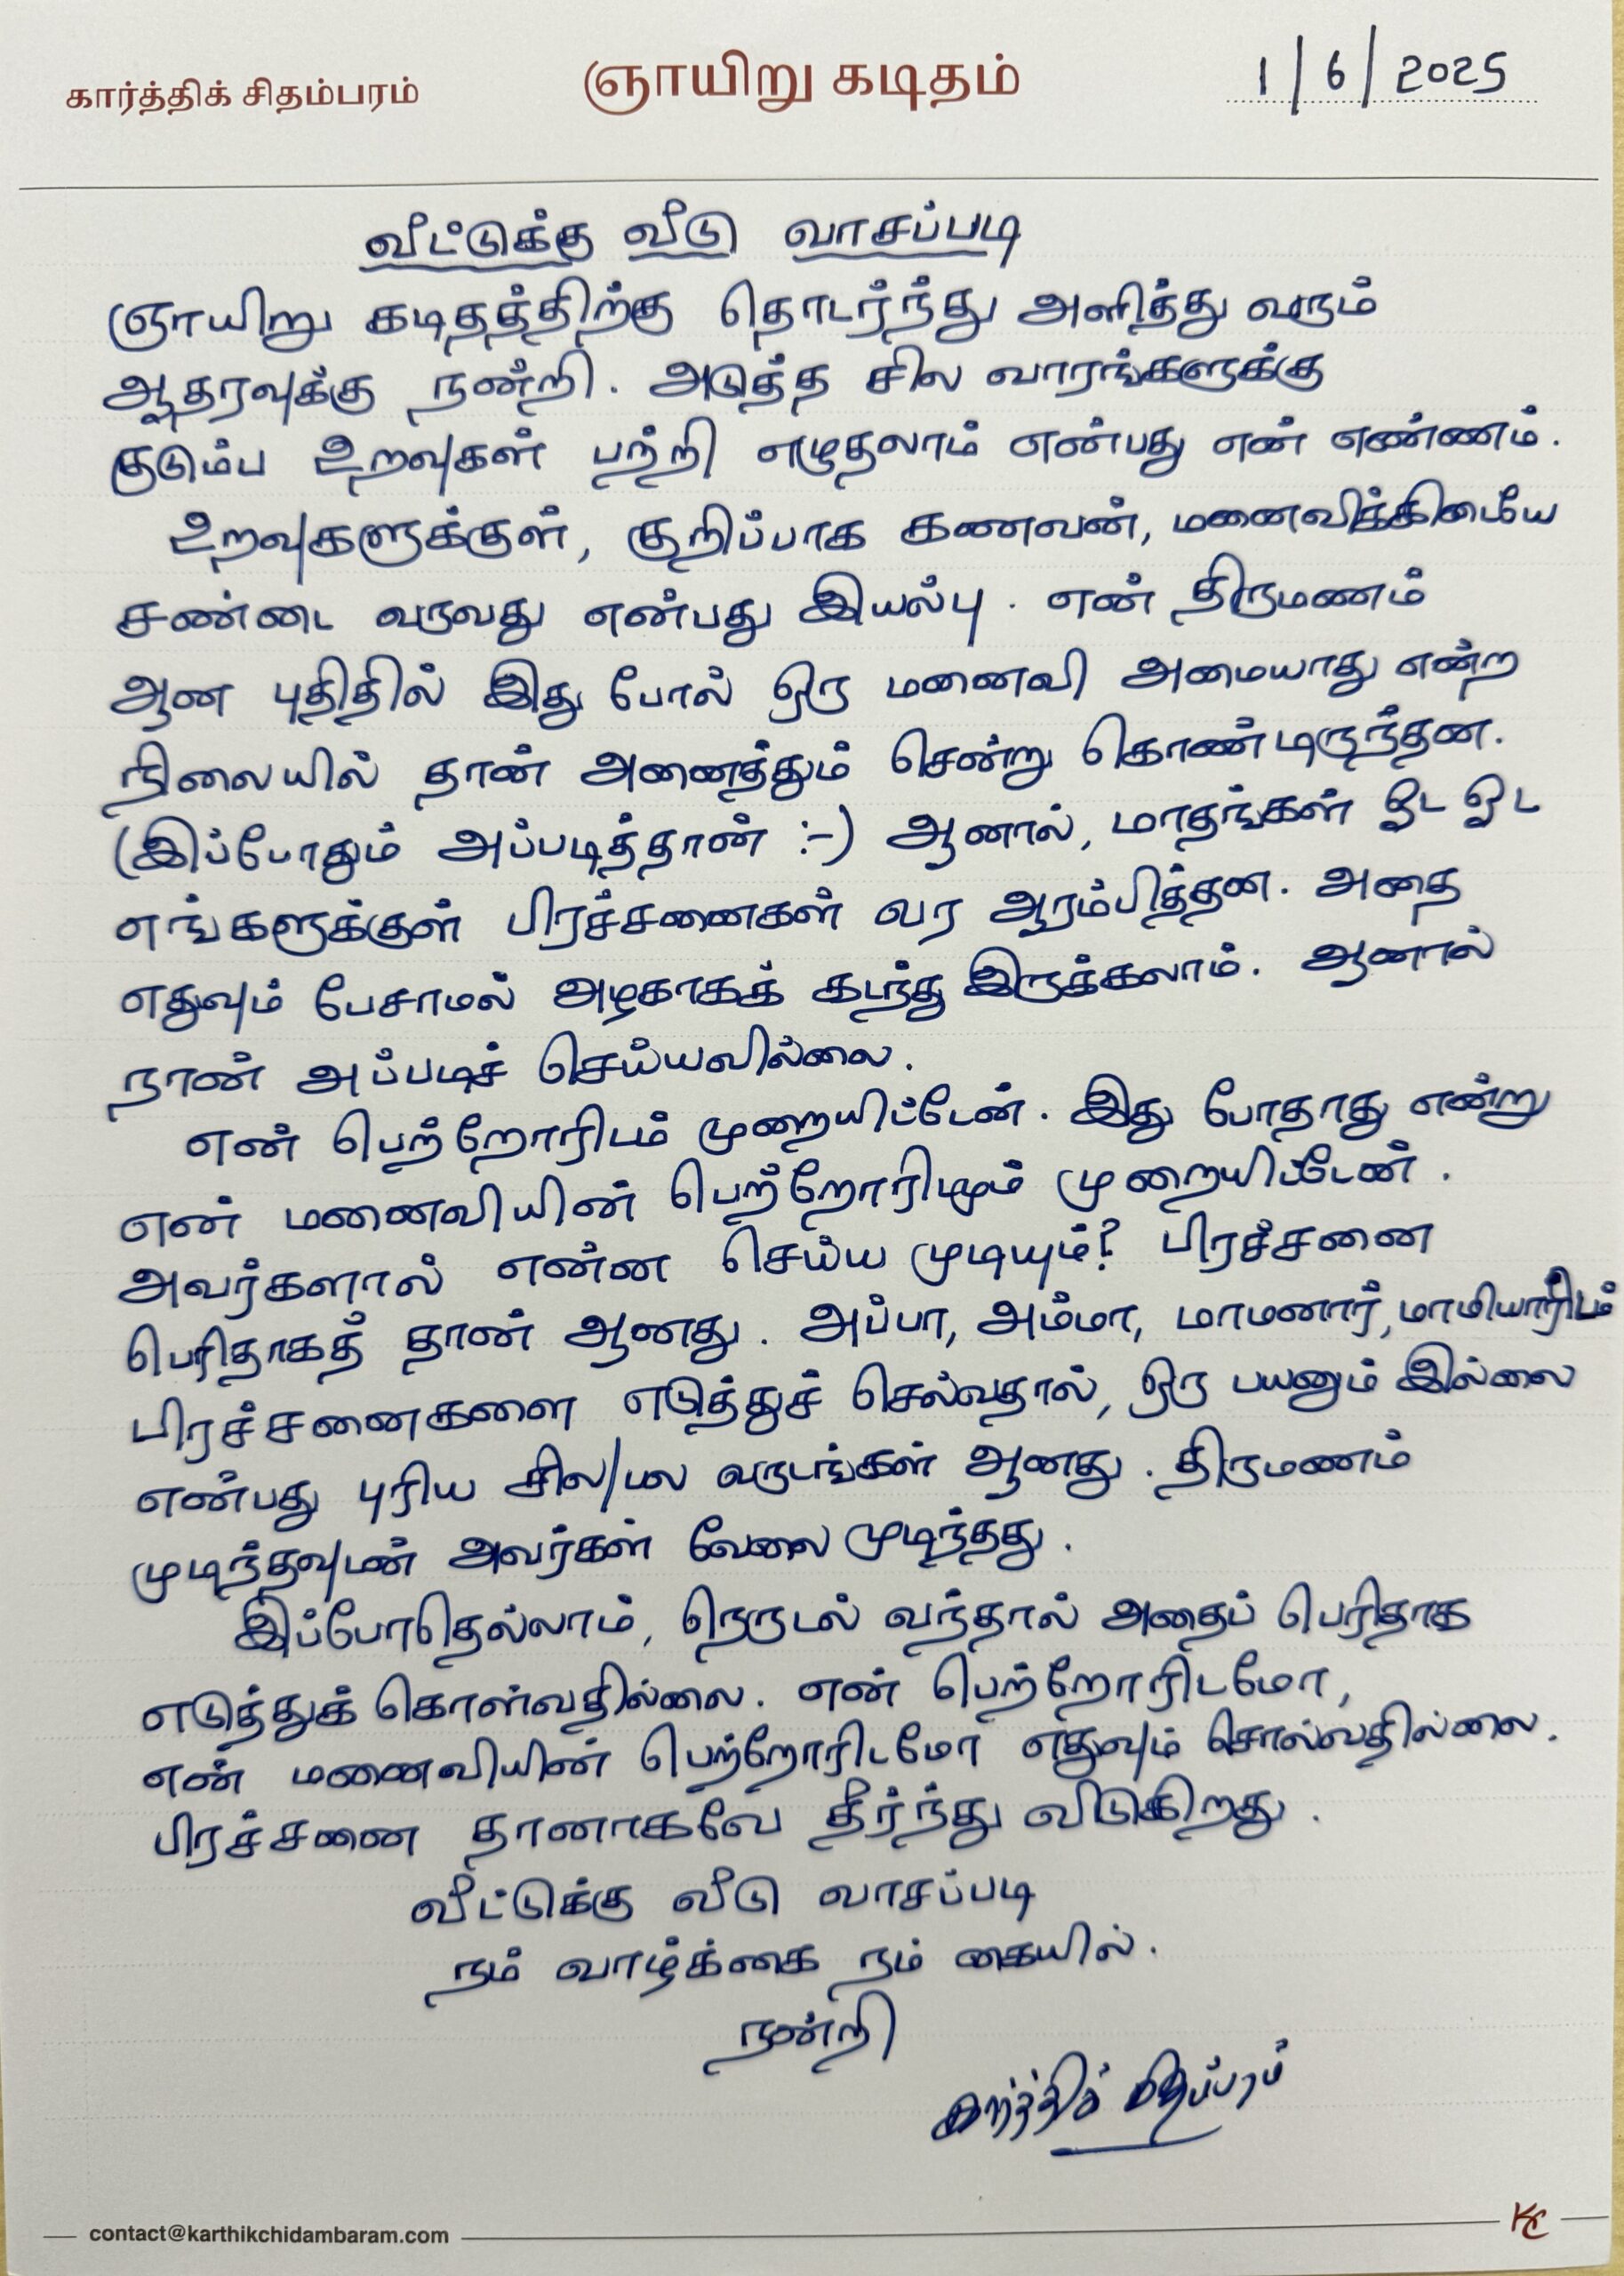 கார்த்திக் சிதம்பரம்
ஞாயிறு கடிதம்
1/6/2025
வீட்டுக்கு வீடு வாசப்படி
ஞாயிறு கடிதத்திற்கு தொடர்ந்து அளித்து வரும்
ஆதரவுக்கு நன்றி. அடுத்த சில வாரங்களுக்கு
குடும்ப உறவுகள் பற்றி எழுதலாம் என்பது என் எண்ணம்.
உறவுகளுக்குள், குறிப்பாக கணவன், மனைவிக்கிடையே
சண்டை வருவது என்பது இயல்பு. என் திருமணம்
ஆன புதிதில் இது போல் ஒரு மனைவி அமையாது என்ற
நிலையில் தான் அனைத்தும் சென்று கொண்டிருந்தன.
(இப்போதும் அப்படித்தான் :-) ஆனால், மாதங்கள் ஓட ஓட
எங்களுக்குள் பிரச்சனைகள் வர ஆரம்பித்தன. அதை
எதுவும் பேசாமல் அழகாகக் கடந்து இருக்கலாம். ஆனால்
நான் அப்படிச் செய்யவில்லை.
என் பெற்றோரிடம் முறையிட்டேன். இது போதாது என்று
என் மனைவியின் பெற்றோரிடமும் முறையிட்டேன்.
அவர்களால் என்ன செய்ய முடியும்? பிரச்சனை
பெரிதாகத் தான் ஆனது. அப்பா, அம்மா, மாமனார், மாமியாரிடம்
பிரச்சனைகளை எடுத்துச் செல்வதால், ஒரு பயனும் இல்லை
என்பது புரிய சில/பல வருடங்கள் ஆனது. திருமணம்
முடிந்தவுடன் அவர்கள் வேலை முடிந்தது.
இப்போதெல்லாம், நெருடல் வந்தால் அதைப் பெரிதாக
எடுத்துக் கொள்வதில்லை. என் பெற்றோரிடமோ,
என் மனைவியின் பெற்றோரிடமோ எதுவும் சொல்வதில்லை.
பிரச்சனை தானாகவே தீர்ந்து விடுகிறது.
வீட்டுக்கு வீடு வாசப்படி
நம் வாழ்க்கை நம் கையில்.
நன்றி
கார்த்திக் சிதம்பரம்
contact@karthikchidambaram.com
KC